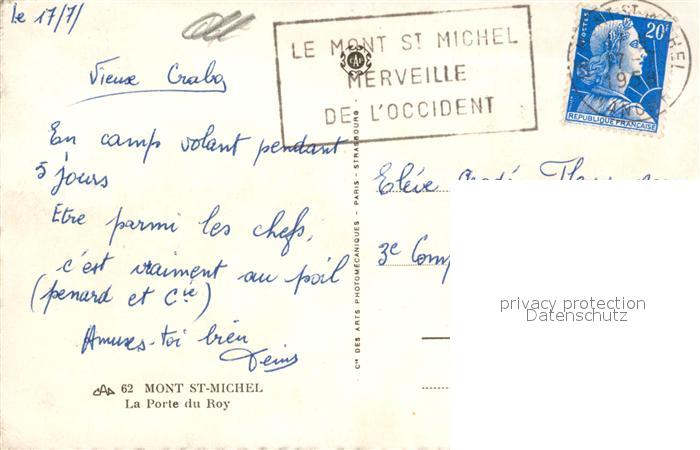 le 17/7/
LE MONT St MICHEL
MERVEILLE
DE L'OCCIDENT
20F
POSTES
REPUBLIQUE FRANÇAISE
Vieux Crabe
En camp volant pendant
5 jours
Etre parmi les chefs,
c'est vraiment au poil
(penard et Cie)
Amuses-toi bien
Denis
62 MONT ST-MICHEL
La Porte du Roy
Cie DES ARTS PHOTOMECANIQUES - PARIS - STRASBOURG
Elève
3e Comp
privacy protection
Datenschutz